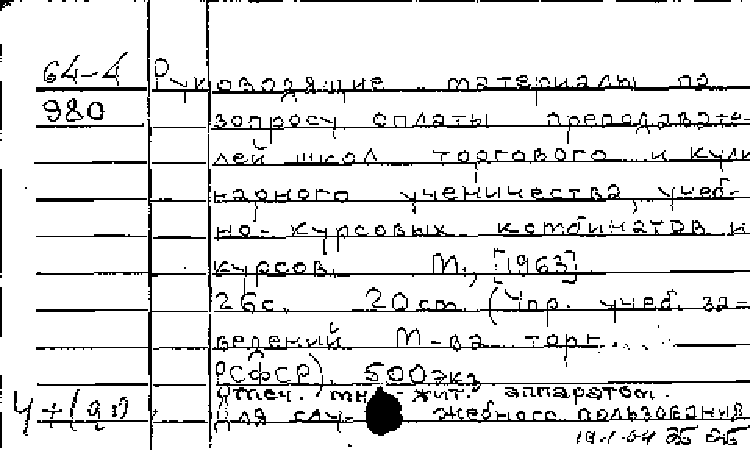 64-4 Руководящие материалы по
980 вопросу оплаты преподавате-
лей школ торгового и кули
нарного ученичества, учеб-
но-курсовых комбинатов и
курсов. М., [1963]
26с. 20 cm. (Упр. учеб. за-
ведений М-ва торг.
РСФСР). 500 экз.
Отпеч. мн.-жит. аппаратом.
Для слу- жебного пользования